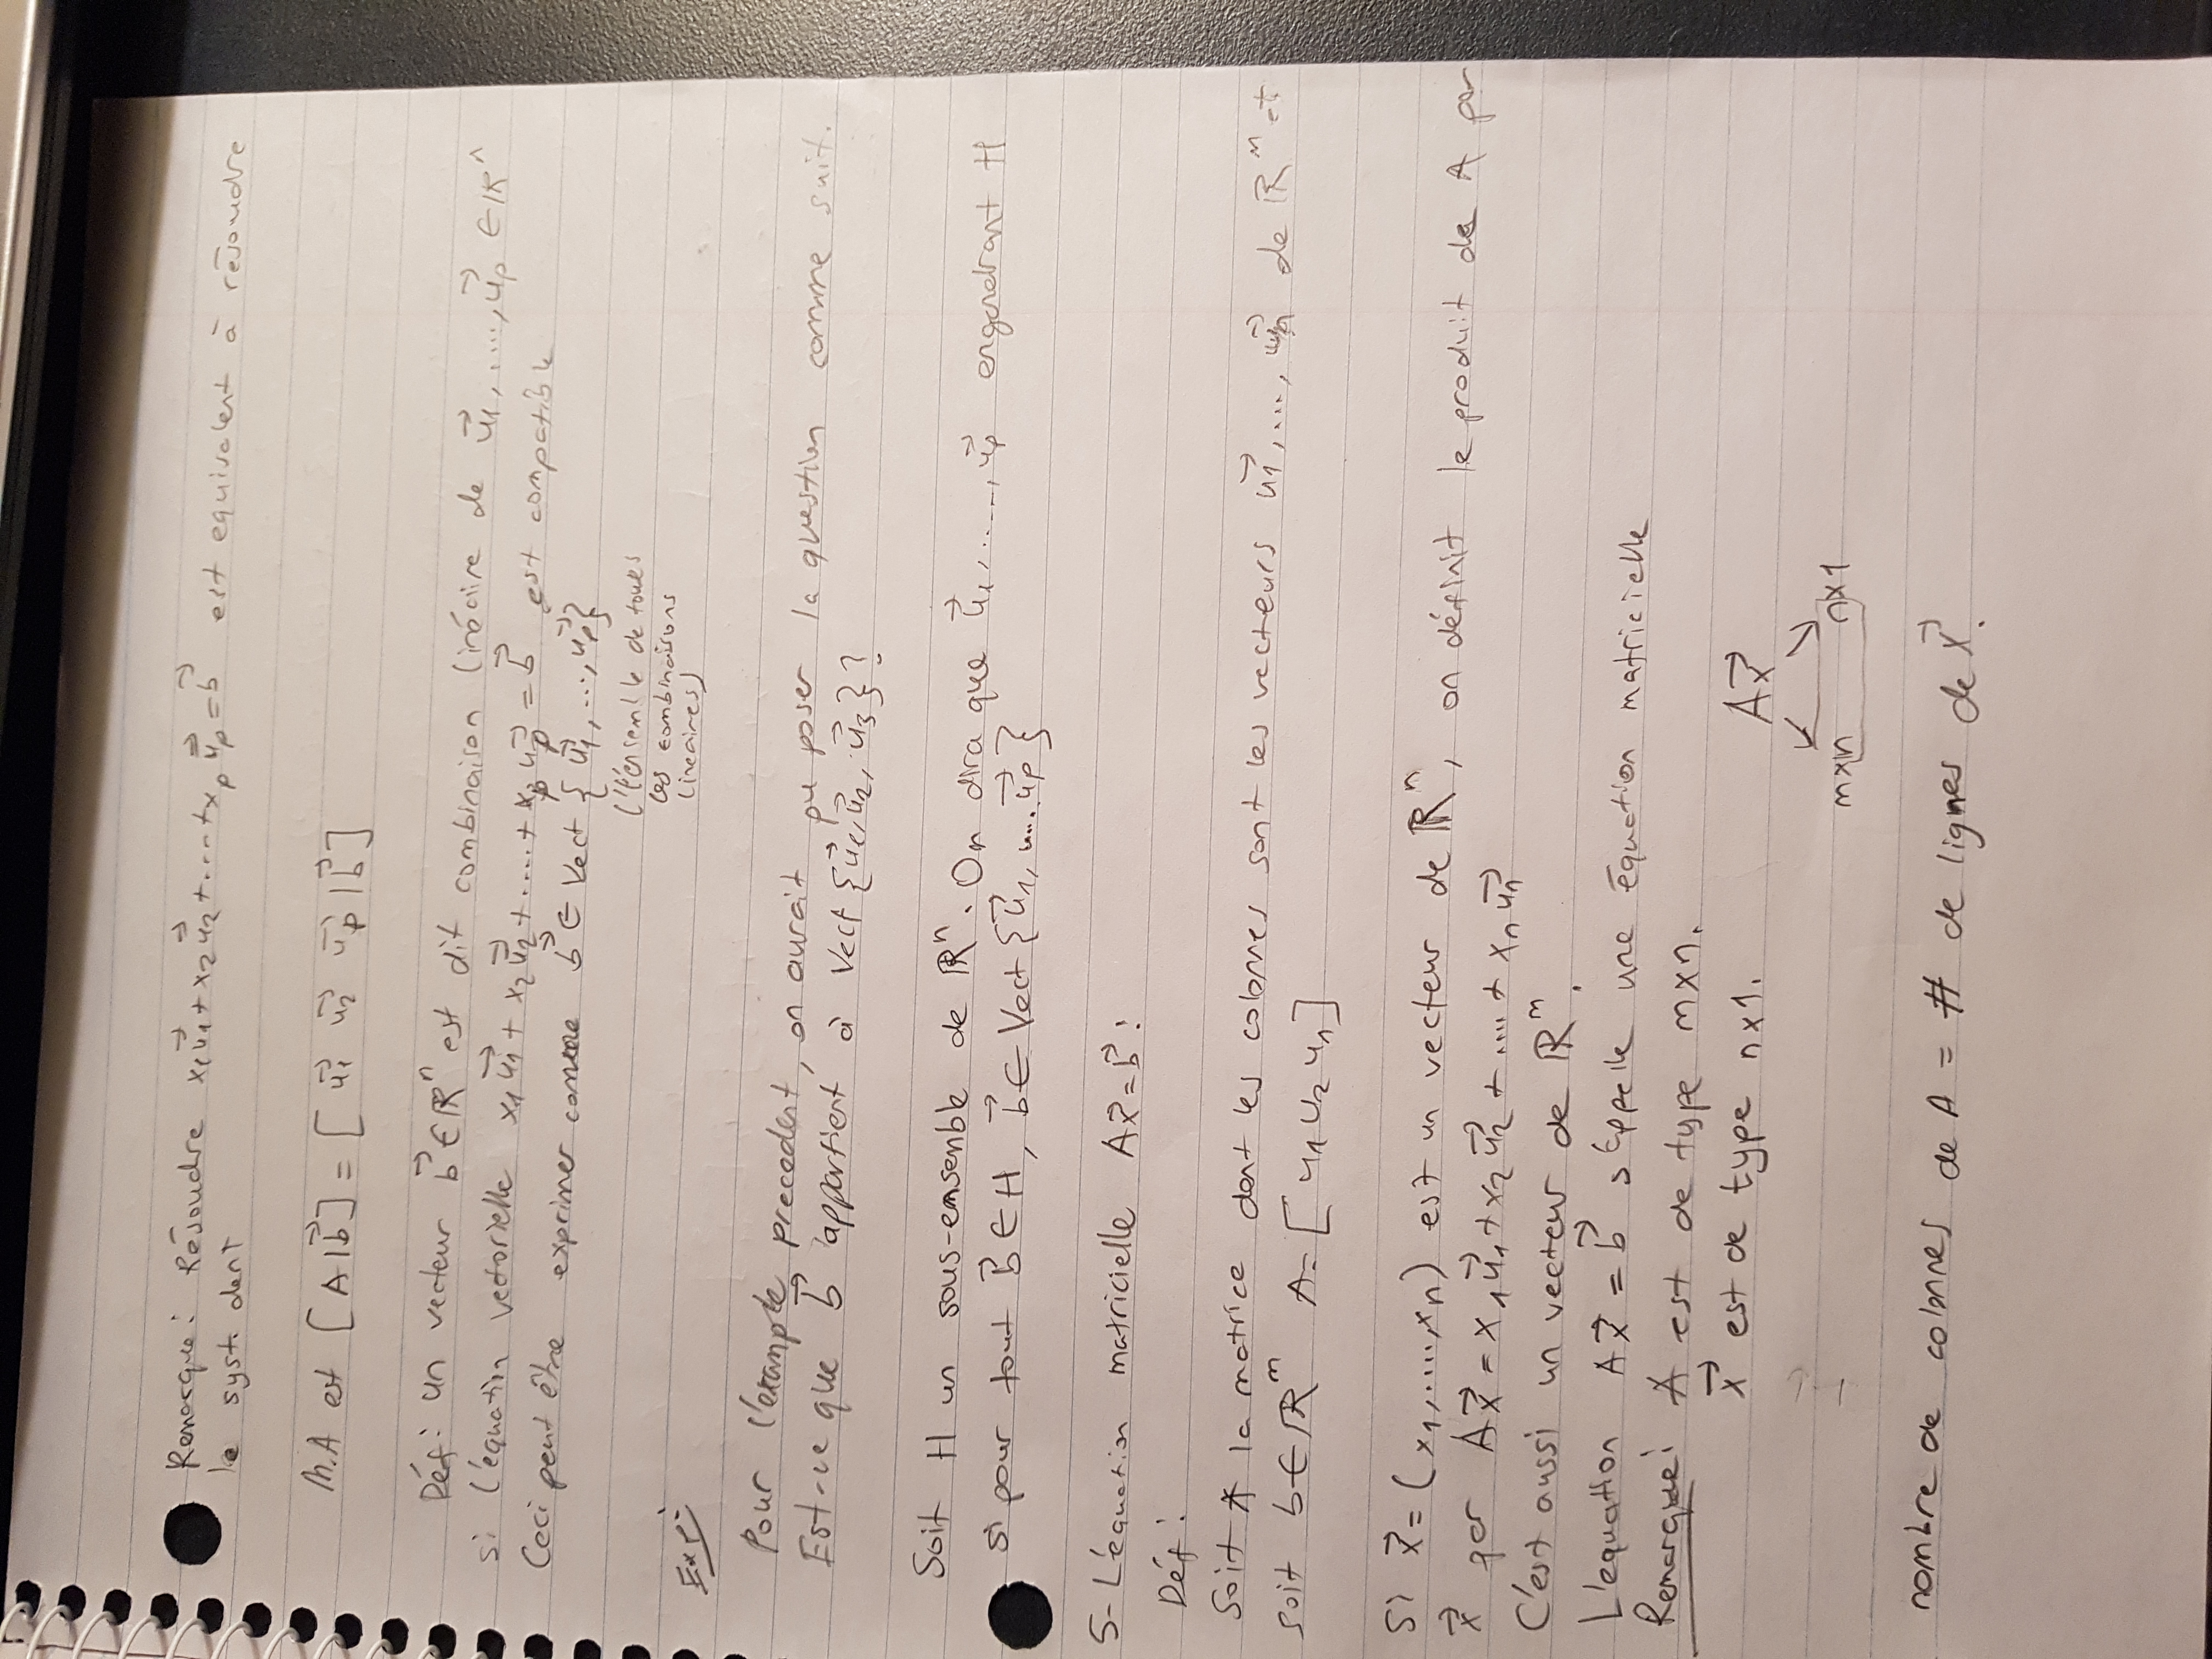 Remarque: Résoudre x₁u⃗₁ + x₂u⃗₂ + .... + xₚu⃗ₚ = b⃗ est equivalent à résoudre
le syst. dent
M.A est [A|b⃗] = [ u⃗₁ u⃗₂ u⃗ₚ | b⃗ ]
Déf: un vecteur b⃗ ∈ ℝⁿ est dit combinaison linéaire de u⃗₁, ...., u⃗ₚ ∈ ℝⁿ
si l'équation vectorielle x₁u⃗₁ + x₂u⃗₂ + .... + xₚu⃗ₚ = b⃗ est compatible
Ceci peut être exprimer comme b⃗ ∈ Vect { u⃗₁, ..., u⃗ₚ }
(l'ensemble de toues
les combinaisons
lineaires)
Exp:
Pour l'example precedent, on aurait pu poser la question comme suit.
Est-ce que b⃗ appartient à Vect {u⃗₁, u⃗₂, u⃗₃} ?
Soit H un sous-emsemble de ℝⁿ. On dira que u⃗₁, ...., u⃗ₚ engendrant H
si pour tout b⃗ ∈ H, b⃗ ∈ Vect {u⃗₁, ..... u⃗ₚ}
5- L'équation matricielle Ax⃗ = b⃗ :
Déf:
Soit A la matrice dont les colonnes sont les vecteurs u⃗₁, ..., u⃗ₙ de ℝᵐ et
soit b ∈ ℝᵐ A = [ u₁ u₂ uₙ ]
Si x⃗ = (x₁, ...., xₙ) est un vecteur de ℝⁿ, on définit le produit de A par
x⃗ par Ax⃗ = x₁u⃗₁ + x₂u⃗₂ + .... + xₙu⃗ₙ
C'est aussi un vecteur de ℝᵐ.
L'equation Ax⃗ = b⃗ s'appelle une équation matricielle
Remarque: A est de type m×n.
x⃗ est de type n×1.
Ax⃗
m×n n×1
nombre de colonnes de A = # de lignes de x⃗.